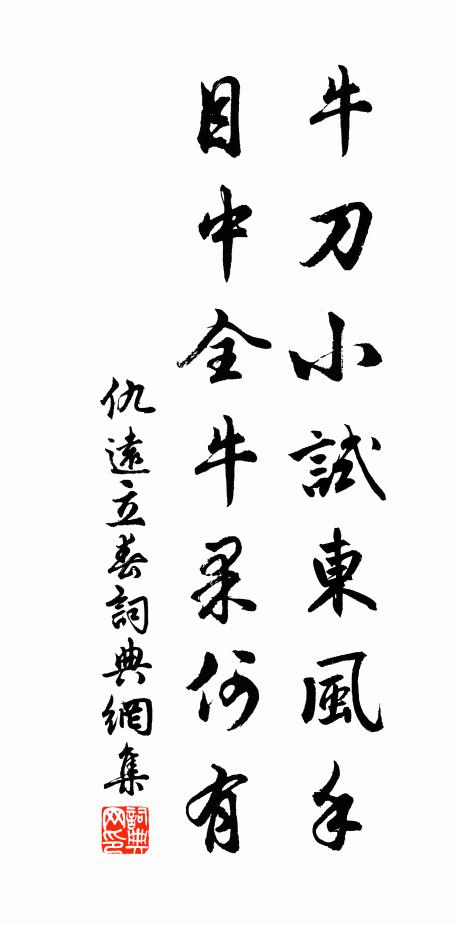 牛刀小試東風手
目中全牛果何有
仇遠立春詞典網集
詞典网印